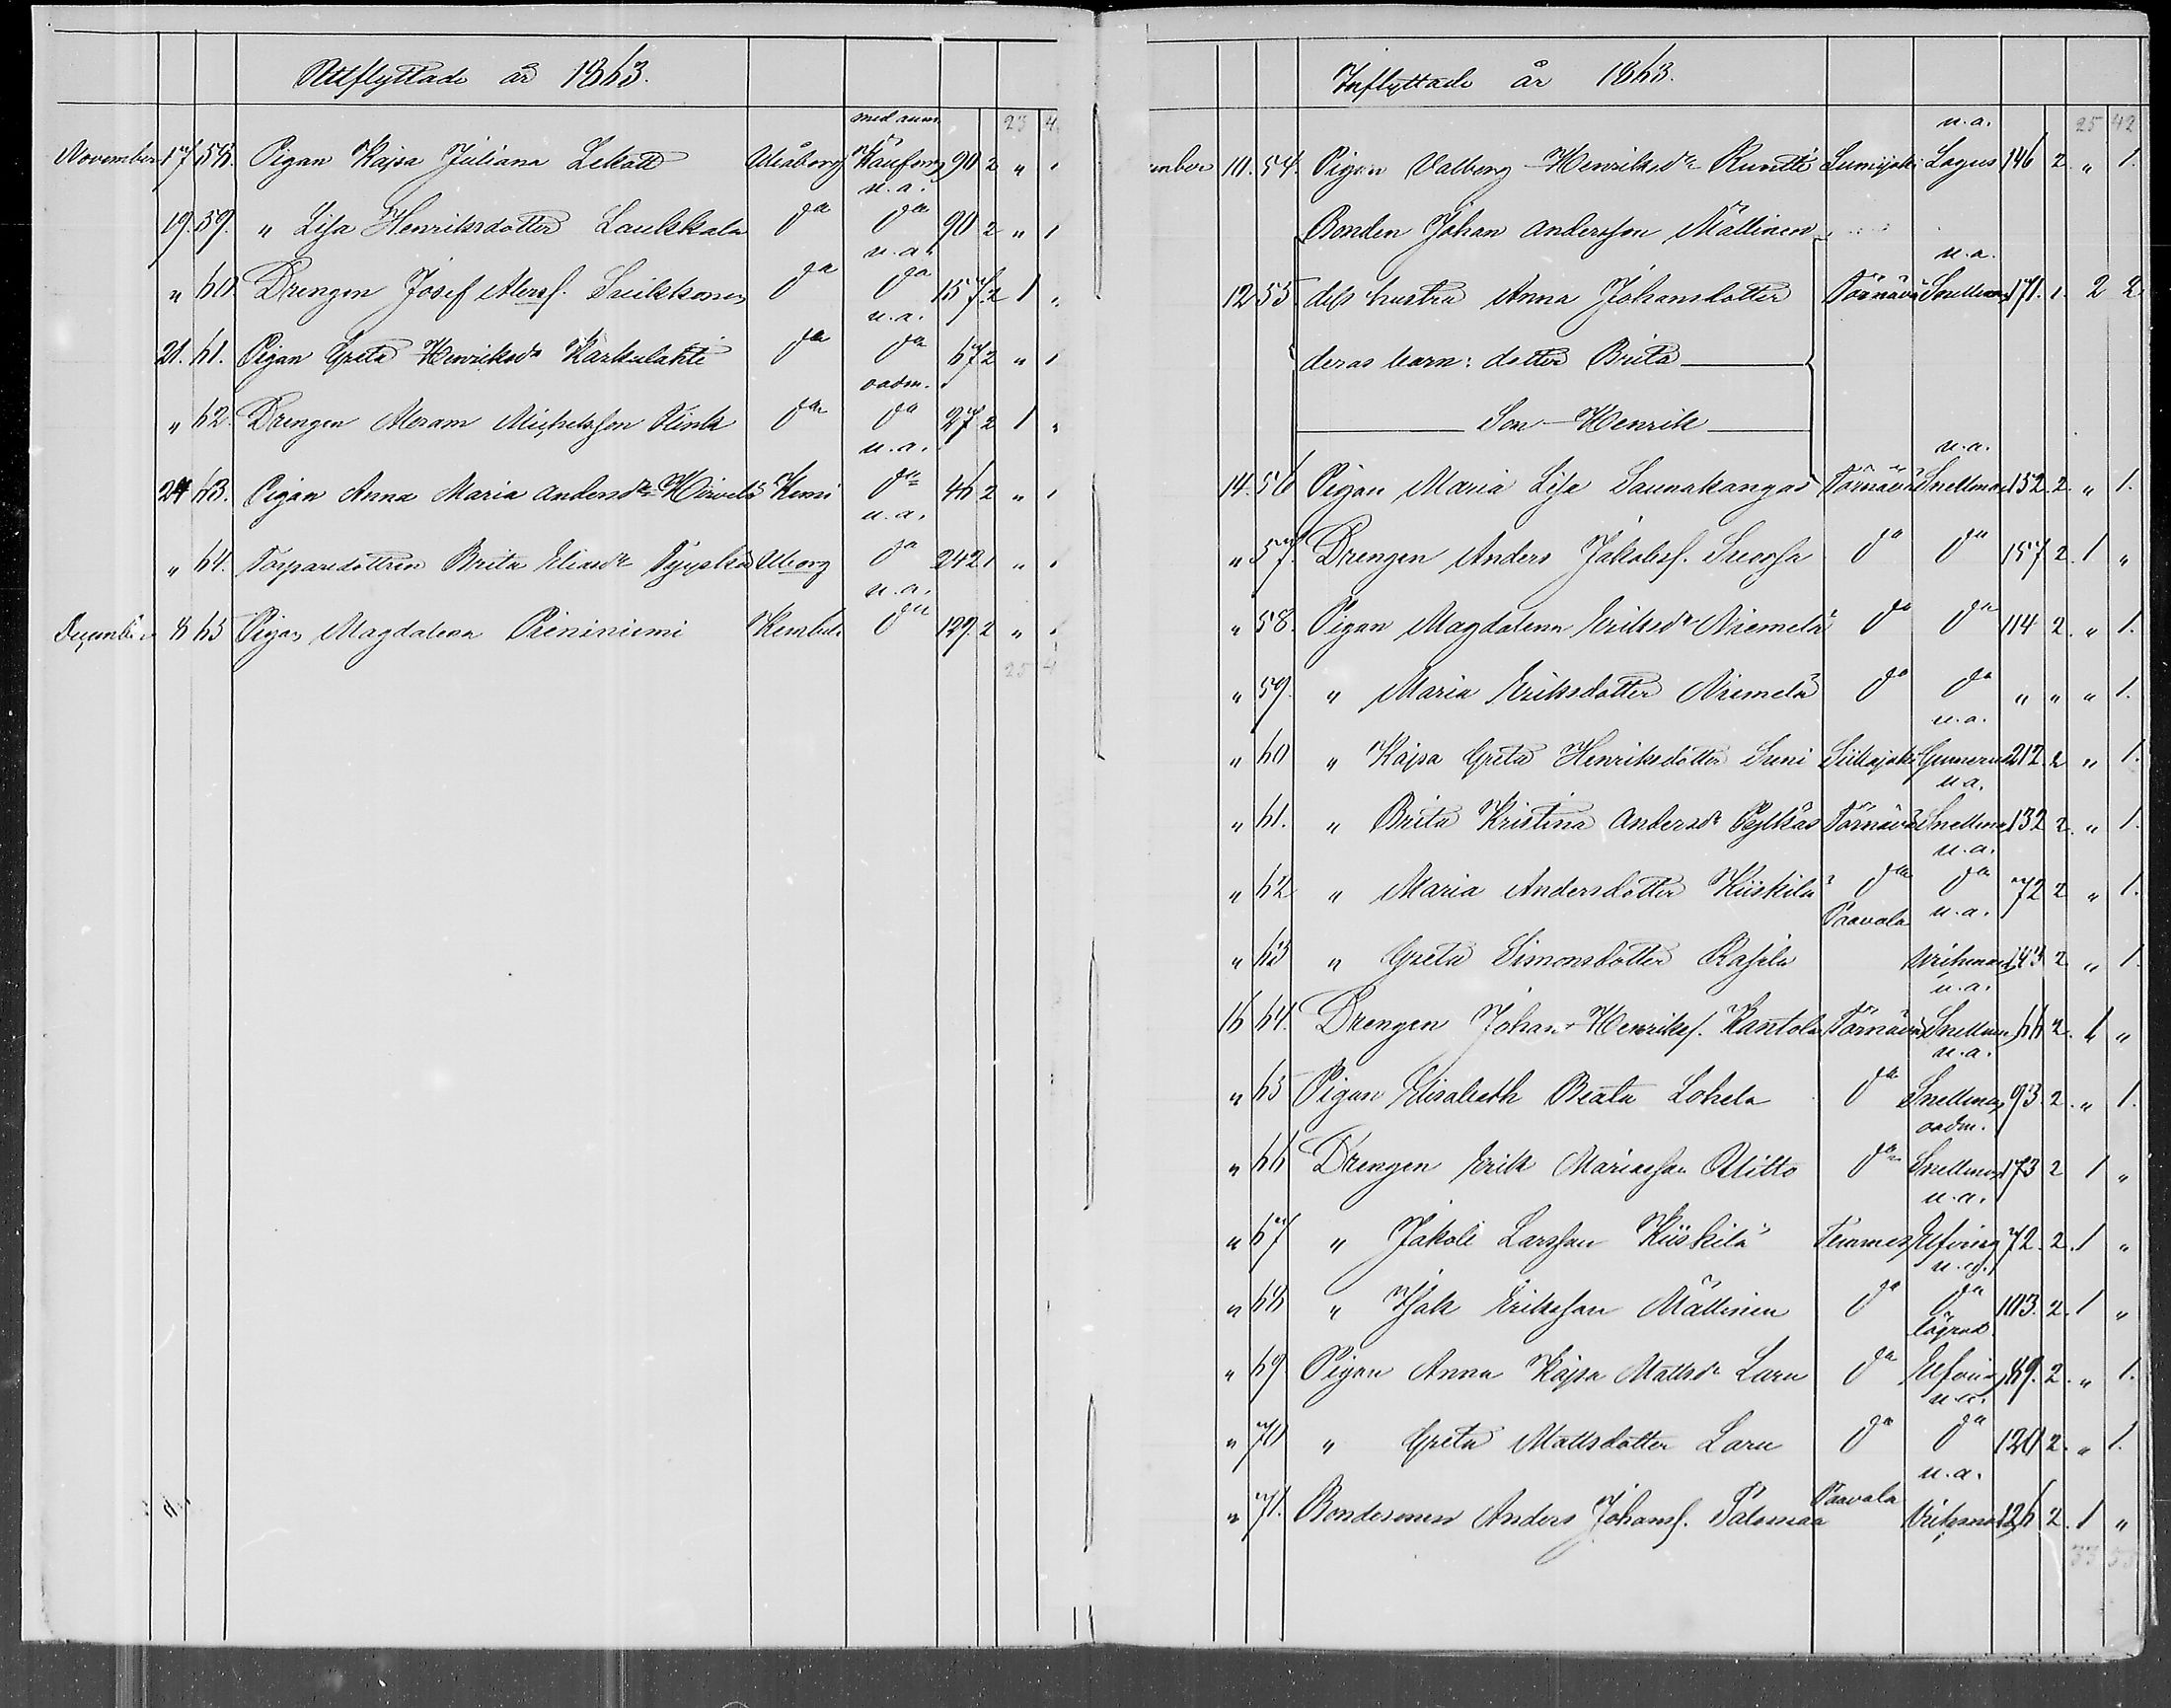 Utflyttade år 1863.
med anm. 23 4
November 17 58. Pigan Kajsa Juliana Lekatti Uleåborg 90 2 " 1
n. a.
19. 59. " Lisa Henriksdotter Laukkala d:o d:o 90 2 " 1
n. a.
" 60 Drengen Josef Abersf. d:o d:o 157 2 1 "
n. a.
21. 61. Pigan Greta Henriksd:r Karkulahti d:o d:o 67 2 " 1
oadm.
" 62. Drengen Abram Michelsson d:o d:o 27 2 1 "
n. a.
24 63. Pigan Anna Maria Andersd:r Hirvelä Kemi d:o 46 2 " 1
n. a.
" 64. Torparedottren Brita Eliasd:r Uborg d:o 242 1 " 1
n. a.
December 8 65 Pigan Magdalena Pieniniemi Kembele d:o 129. 2 " 1
25 4
Inflyttade år 1863.
n. a. 25 42
mber 10. 54. Pigan Valborg Henriksd:r Runtti Lumijoki Lagus 146 2. " 1.
Bonden Johan Andersson Mällinen
n. a.
12 55 dess hustru Anna Johansdotter Törnävä Snellman 171. 1. 2 2
deras barn: dotter Brita
Son Henrik
n. a.
14. 56 Pigan Maria Lisa Saunakangas Törnävä Snellman 152. 2. " 1.
" 57. Drengen Anders Jakobsf. d:o d:o 157 2. 1 "
" 58. Pigan Magdalena Eriksd:r Niemelä d:o d:o 114 2. " 1.
" 59. " Maria Eriksdotter Niemelä d:o d:o " " " 1.
n. a.
" 60 " Kajsa Greta Henriksdotter Suni Siikajoki Gummerus 212. 2 " 1.
n. a.
" 61. " Brita Kristina Andersd:r Pylkäs Törnävä Snellman 132 2. " 1.
n. a.
" 62 " Maria Andersdotter Kiiskilä d:o d:o 72 2 " 1.
Paavola n. a.
" 63 " Greta Simonsdotter Wichmann 143 2 " 1.
n. a.
16 64. Drengen Johan Henriksf. Kantola Törnävä Snellman 66 2. 1 "
n. a.
" 65 Pigan Elisabeth Beata Lohela d:o Snellman 93. 2. " 1.
oadm.
" 66 Drengen Erik Mariasson d:o Snellman 173 2 1 "
n. a.
" 67 " Jakob Larsson Kiiskilä Temmes Elfving 72. 2. 1 "
n. a.
" 68 " Isak Eriksson Mällinen d:o d:o 103. 2. 1 "
lägrad
" 69 Pigan Anna Kajsa Mattsd:r Laru d:o Elfving 89. 2. " 1.
n. a.
" 70 " Greta Mattsdotter Laru d:o d:o 120 2. " 1.
n. a.
" 71. Bondesonen Anders Johansf. Palomaa Paavola Wichmann 126 2. 1 "
33 55